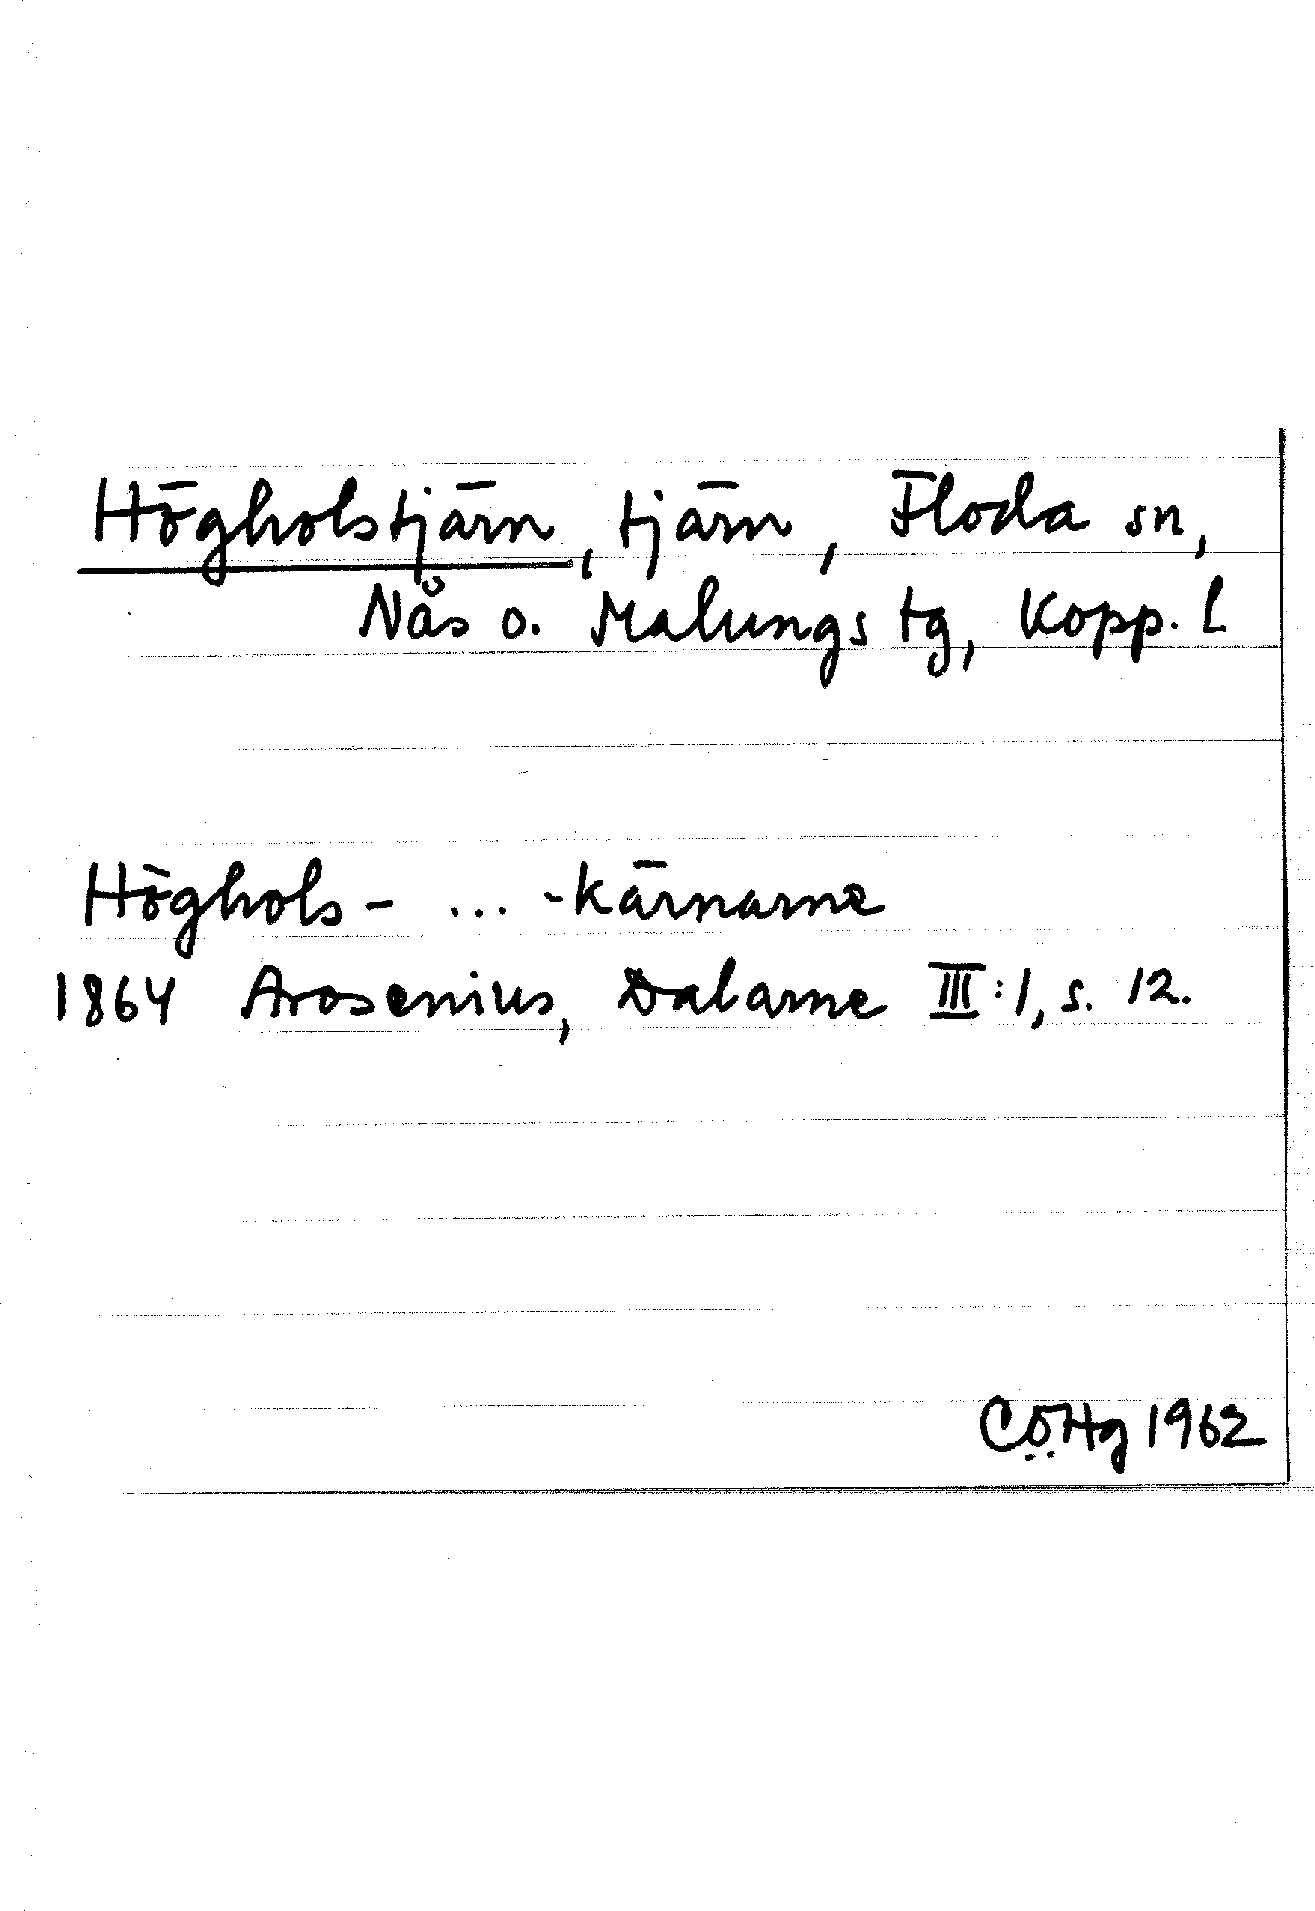 Högholstjärn, tjärn, Floda sn,
Nås o. Malungs tg, Kopp. l
Höghols- ... -kärnarne
1864 Arosenius, Dalarne III:1, s. 12.
CÖHg 1962